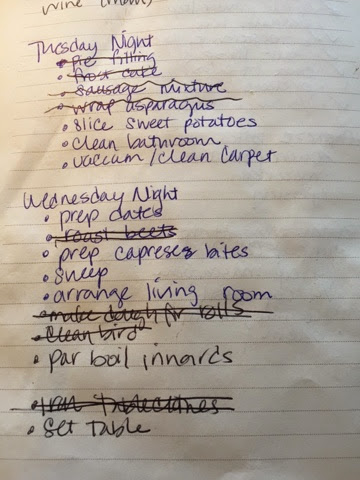 wine (mom)
Tuesday Night
• pie filling
• frost cake
• sausage mixture
• wrap asparagus
• slice sweet potatoes
• clean bathroom
• vaccum/clean carpet
Wednesday Night
• prep dates
• roast beets
• prep capreses bites
• sweep
• arrange living room
• make dough for rolls
• clean bird
• par boil innards
• Iron Tablecloths
• Set Table